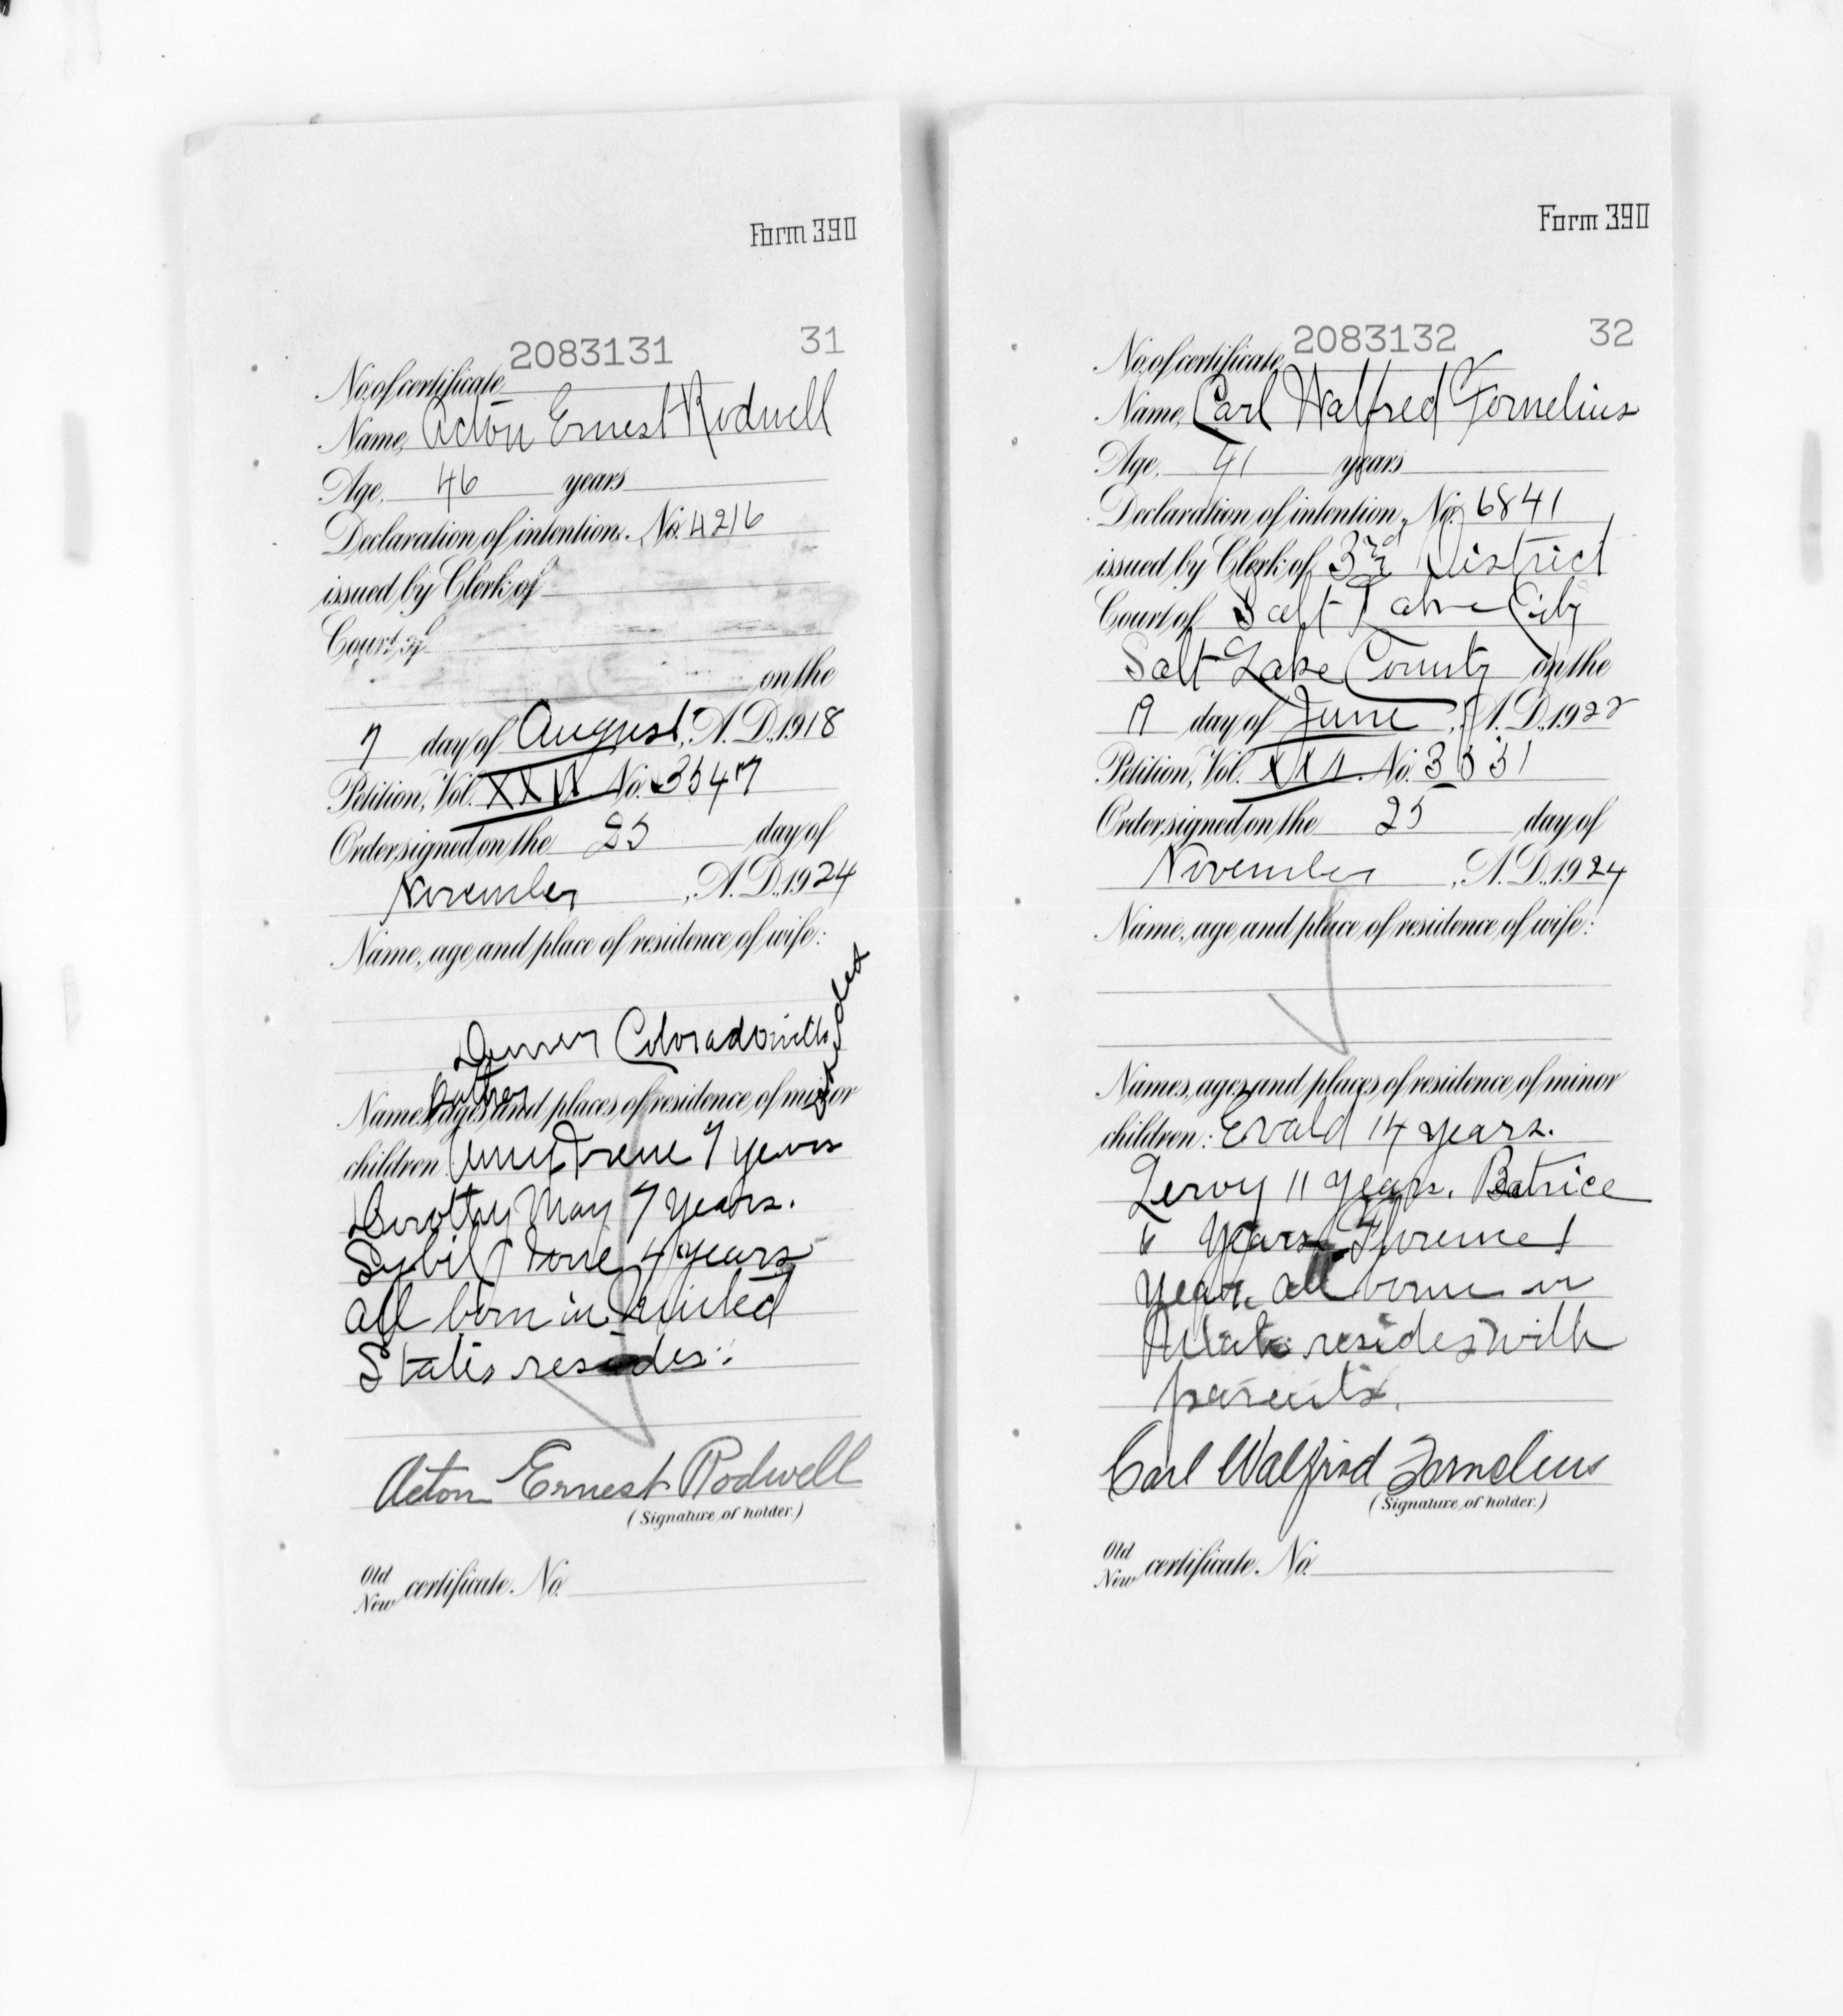 Form 390
2083131 31
No. of certificate
Name, Acton Ernest Rodwell
Age, 46 years
Declaration of intention, No. 4216
issued by Clerk of
Court of
on the
7 day of August, A.D. 1918
Petition, Vol. No. 3547
Order signed on the 25 day of
November, A.D. 1924
Name, age, and place of residence of wife:
Denver Colorado with
Names, ages, and places of residence of minor
children Irene 7 years
Dorothy May 7 years.
Sybil 4 years
all born in United
States resides
Acton Ernest Rodwell
(Signature of holder.)
Old
New certificate. No.
Form 390
2083132 32
No. of certificate,
Name, Carl Walfred Fornelius
Age, 41 years
Declaration of intention, No. 6841
issued by Clerk of 3rd District
Court of Salt Lake City
Salt Lake County on the
19 day of June, A.D. 1922
Petition, Vol. No. 3531
Order signed on the 25 day of
November, A.D. 1924
Name, age, and place of residence of wife:
Names, ages, and places of residence of minor
children: Evald 14 years.
Leroy 11 years. Batrice
6 years Florence 1
year. all born in
resides with
parents.
Carl Walfrid Fornelius
(Signature of holder.)
Old
New certificate. No.